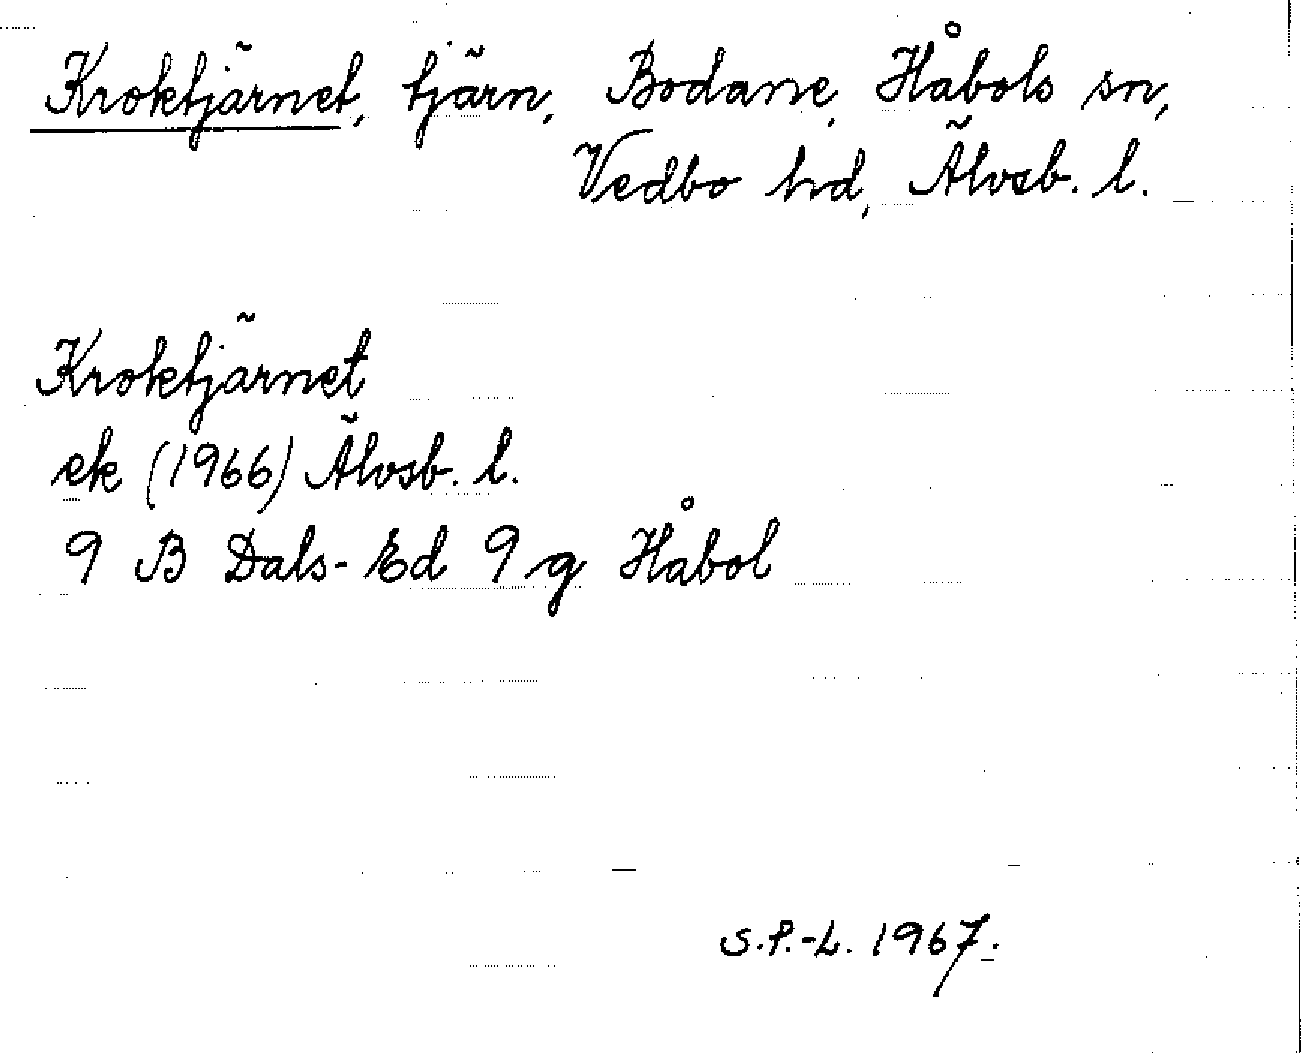 Kroktjärnet, tjärn, Bodane, Håbols sn,
Vedbo hd, Älvsb. l.
Kroktjärnet
ek (1966) Älvsb. l.
9 B Dals-Ed 9 g Håbol
S.P.-L. 1967.